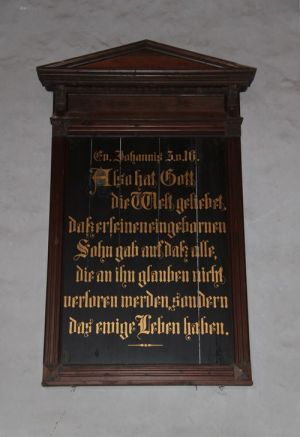 Ev. Johannis 3.v.16.
Also hat Gott
die Welt geliebet,
daß er seinen eingebornen
Sohn gab auf daß alle,
die an ihn glauben nicht
verloren werden, sondern
das ewige Leben haben.